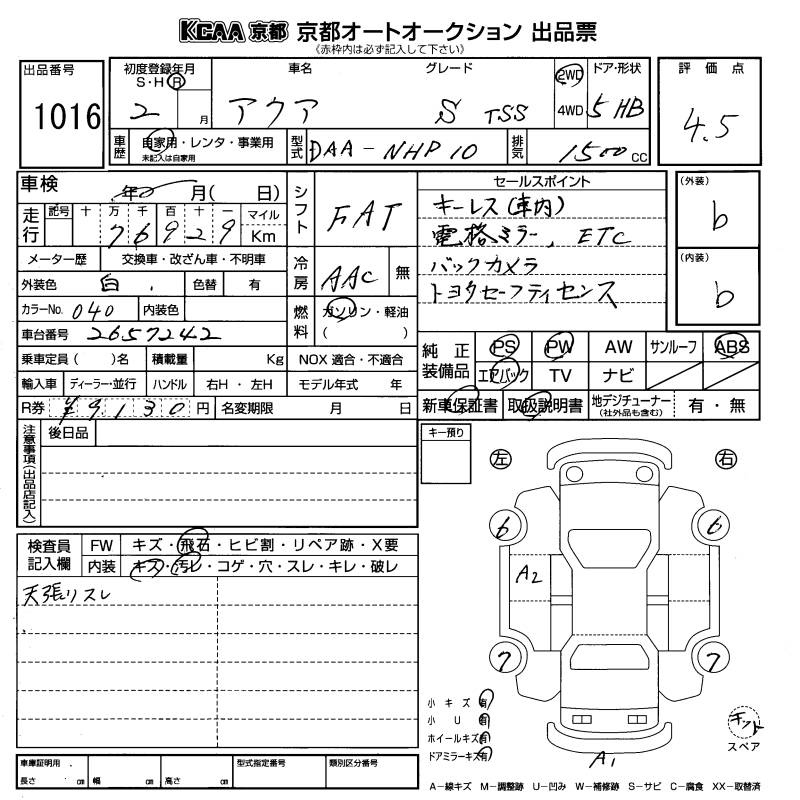 KCAA 京都 京都オートオークション 出品票
(赤枠内は必ず記入して下さい)
出品番号
1016
初度登録年月
S・H・R
2 月
車名
アクア
グレード
S TSS
2WD
4WD
ドア・形状
5 HB
評価点
4.5
車歴
自家用・レンタ・事業用
未記入は自家用
型式
DAA-NHP10
排気
1500 CC
車検
年 月( 日)
シフト
FAT
セールスポイント
キーレス(車内)
電格ミラー, ETC
バックカメラ
トヨタセーフティセンス
(外装)
b
(内装)
b
走行
記号 十 万 千 百 十 一 マイル
76929 Km
メーター歴 交換車・改ざん車・不明車
冷房
AAC 無
外装色 白 色替 有
カラーNo. 040 内装色
燃料
ガソリン・軽油
( )
車台番号 2657242
純正装備品
PS PW AW サンルーフ ABS
エアバック TV ナビ
乗車定員( )名 積載量 Kg NOX 適合・不適合
輸入車 ディーラー・並行 ハンドル 右H・左H モデル年式 年
新車保証書 取扱説明書 地デジチューナー(社外品も含む) 有・無
R券 ¥9,130円 名変期限 月 日
注意事項(出品店記入)
後日品
キー預り
左
右
検査員記入欄
FW キズ・飛石・ヒビ割・リペア跡・X要
内装 キズ・汚レ・コゲ・穴・スレ・キレ・破レ
天張りスレ
6
6
A2
7
7
小キズ 有
小U 有
ホイールキズ 有
ドアミラーキズ 有
A1
キット
スペア
車庫証明用
長さ cm 幅 cm 高さ cm
型式指定番号
類別区分番号
A-線キズ M-調整跡 U-凹み W-補修跡 S-サビ C-腐食 XX-取替済